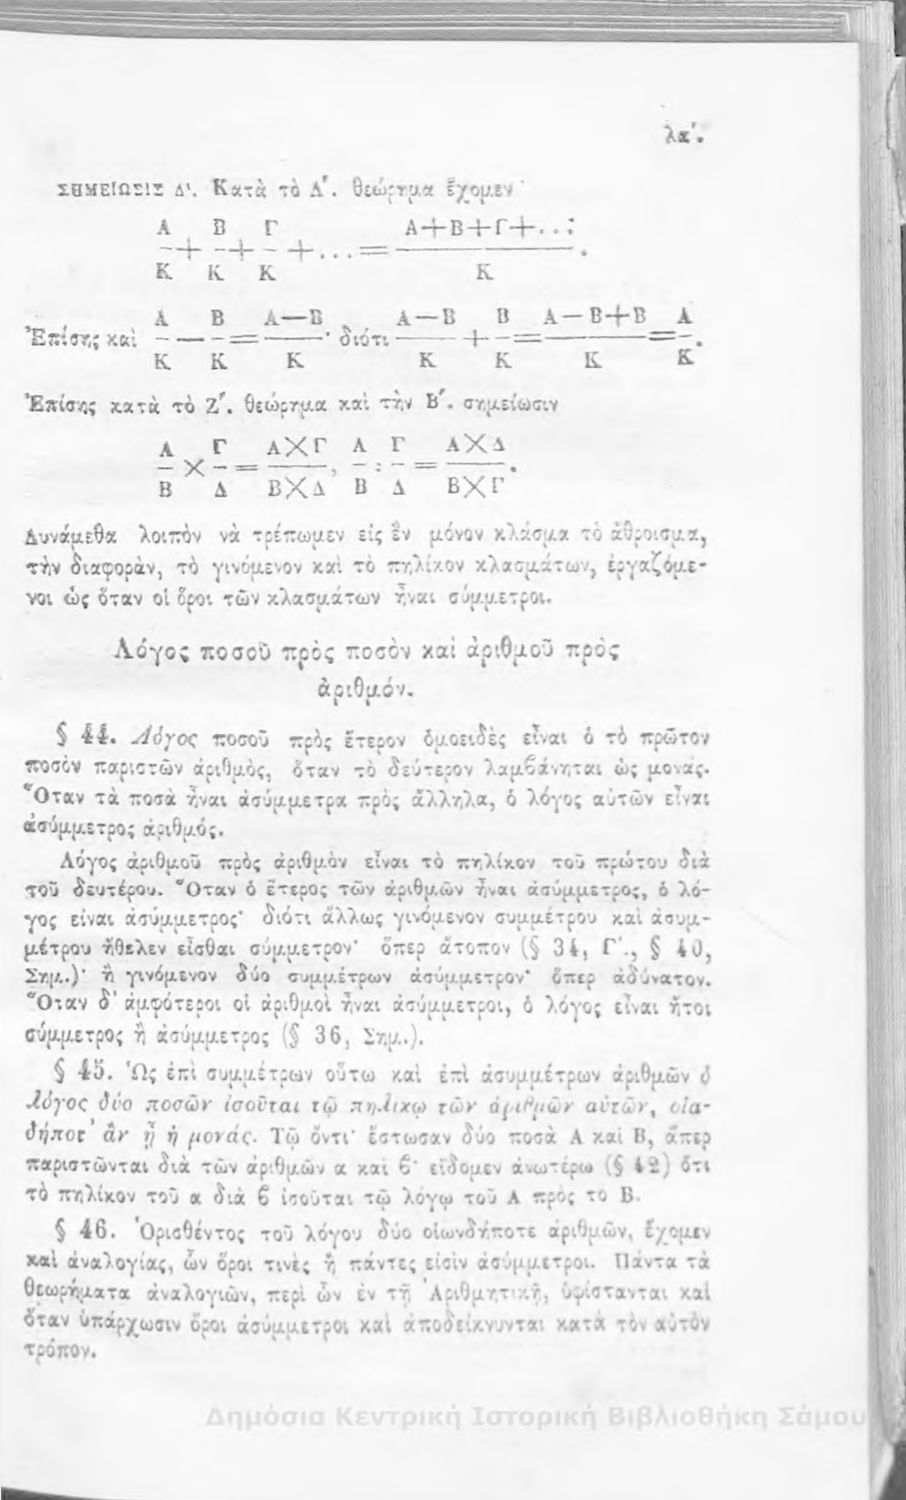 λα΄.
ΣΗΜΕΙΩΣΙΣ Δ'. Κατὰ τὸ Δ΄. θεώρημα ἔχομεν
Α/Κ + Β/Κ + Γ/Κ + ... = Α+Β+Γ+.../Κ.
Ἐπίσης καὶ Α/Κ — Β/Κ = Α—Β/Κ· διότι Α—Β/Κ + Β/Κ = Α—Β+Β/Κ = Α/Κ.
Ἐπίσης κατὰ τὸ Ζ΄. θεώρημα καὶ τὴν Β΄. σημείωσιν
Α/Β × Γ/Δ = Α×Γ/Β×Δ, Α/Β : Γ/Δ = Α×Δ/Β×Γ.
Δυνάμεθα λοιπὸν νὰ τρέπωμεν εἰς ἓν μόνον κλάσμα τὸ ἄθροισμα,
τὴν διαφορὰν, τὸ γινόμενον καὶ τὸ πηλίκον κλασμάτων, ἐργαζόμε-
νοι ὡς ὅταν οἱ ὅροι τῶν κλασμάτων ἦναι σύμμετροι.
Λόγος ποσοῦ πρὸς ποσὸν καὶ ἀριθμοῦ πρὸς
ἀριθμόν.
§ 44. Λόγος ποσοῦ πρὸς ἕτερον ὁμοειδὲς εἶναι ὁ τὸ πρῶτον
ποσὸν παριστῶν ἀριθμὸς, ὅταν τὸ δεύτερον λαμβάνηται ὡς μονάς.
Ὅταν τὰ ποσὰ ἦναι ἀσύμμετρα πρὸς ἄλληλα, ὁ λόγος αὐτῶν εἶναι
ἀσύμμετρος ἀριθμός.
Λόγος ἀριθμοῦ πρὸς ἀριθμὸν εἶναι τὸ πηλίκον τοῦ πρώτου διὰ
τοῦ δευτέρου. Ὅταν ὁ ἕτερος τῶν ἀριθμῶν ἦναι ἀσύμμετρος, ὁ λό-
γος εἶναι ἀσύμμετρος· διότι ἄλλως γινόμενον συμμέτρου καὶ ἀσυμ-
μέτρου ἤθελεν εἶσθαι σύμμετρον· ὅπερ ἄτοπον (§ 34, Γ΄., § 40,
Σημ.)· ἢ γινόμενον δύο συμμέτρων ἀσύμμετρον· ὅπερ ἀδύνατον.
Ὅταν δ' ἀμφότεροι οἱ ἀριθμοὶ ἦναι ἀσύμμετροι, ὁ λόγος εἶναι ἤτοι
σύμμετρος ἢ ἀσύμμετρος (§ 36, Σημ.).
§ 45. Ὡς ἐπὶ συμμέτρων οὕτω καὶ ἐπὶ ἀσυμμέτρων ἀριθμῶν ὁ
λόγος δύο ποσῶν ἰσοῦται τῷ πηλίκῳ τῶν ἀριθμῶν αὐτῶν, οἱα-
δήποτ' ἂν ᾖ ἡ μονάς. Τῷ ὄντι· ἔστωσαν δύο ποσὰ Α καὶ Β, ἅπερ
παριστῶνται διὰ τῶν ἀριθμῶν α καὶ ϐ· εἴδομεν ἀνωτέρω (§ 42) ὅτι
τὸ πηλίκον τοῦ α διὰ ϐ ἰσοῦται τῷ λόγῳ τοῦ Α πρὸς το Β.
§ 46. Ὁρισθέντος τοῦ λόγου δύο οἱωνδήποτε ἀριθμῶν, ἔχομεν
καὶ ἀναλογίας, ὧν ὅροι τινὲς ἢ πάντες εἰσὶν ἀσύμμετροι. Πάντα τὰ
θεωρήματα ἀναλογιῶν, περὶ ὧν ἐν τῇ Ἀριθμητικῇ, ὑφίστανται καὶ
ὅταν ὑπάρχωσιν ὅροι ἀσύμμετροι καὶ ἀποδείκνυνται κατὰ τὸν αὐτὸν
τρόπον.
Δημόσια Κεντρική Ιστορική Βιβλιοθήκη Σάμου